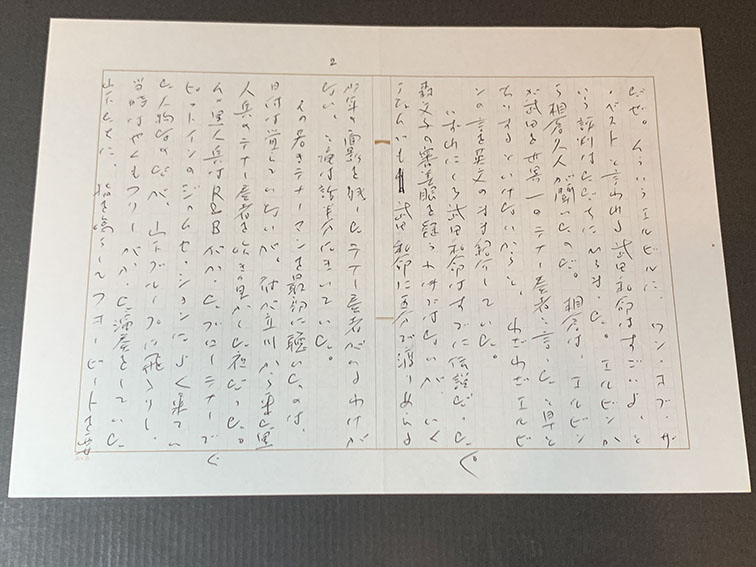 2
だぜ。そういうエルビンに、ワン・オブ・ザ
・ベストと言わせる武田和命はすごいよ、と
いう評判はただちにひろまった。エルビンが
う相倉久人が聞いたのだ。相倉は、エルビン
が武田を世界一のテナー奏者と言ったと早と
ちりするといけないからと、わざわざエルビ
ンの言を英文のまま紹介していた。
いずれにしろ武田和命はすでに伝説だった。
数文子の審美眼を疑うわけではないが、いく
らなんでも武田和命に互角で渡りあえる
少年の面影を残したテナー奏者がいるわけが
ない、と俺は話半分にきいていた。
その若きテナーマンを最初に聴いたのは、
日付は覚えていないが、彼が立川から来た黒
人兵のテナー奏者を吹き負かした夜だった。
その黒人兵はR&Bがかったブローテナーで、
ピットインのジャムセッションによく来てい
た人物なのだが、山下グループに飛入りし、
当時はやくもフリーがかった演奏をしていた
山下ともに、指を鳴らしてフォービートを要